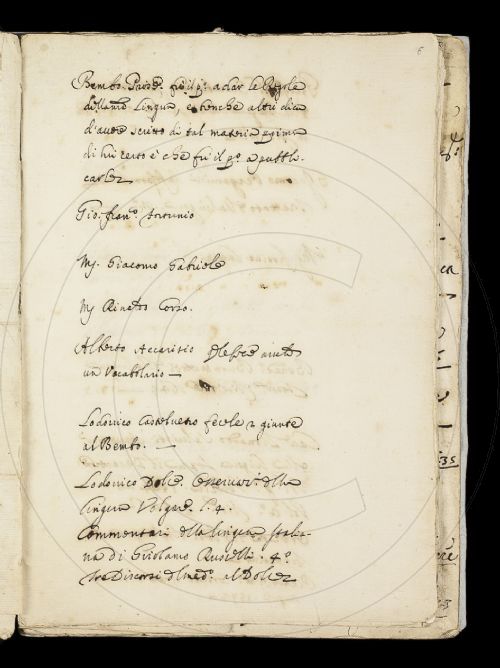 6
Bembo. Pietro. fu il pº. a dar le Regole
della nrā Lingua, e benche altri dica
d'avere scritto di tal materia prima
di lui certo è che fu il pº. a pubbli-
carle
Gio: franº. fortunio
Mʳ. Giacomo Gabriele
Mʳ Rinaldo Corso.
Alberto Accarisio
un Vocabolario —
Lodovico Castelvetro fece le giunte
al Bembo. —
Lodovico Dolce. Osservaz.ⁱ della
lingua Volgare. l. 4.
Commentari della lingua Italia-
na di Girolamo Ruscelli. 4º
tre Discorsi del medº. al Dolce